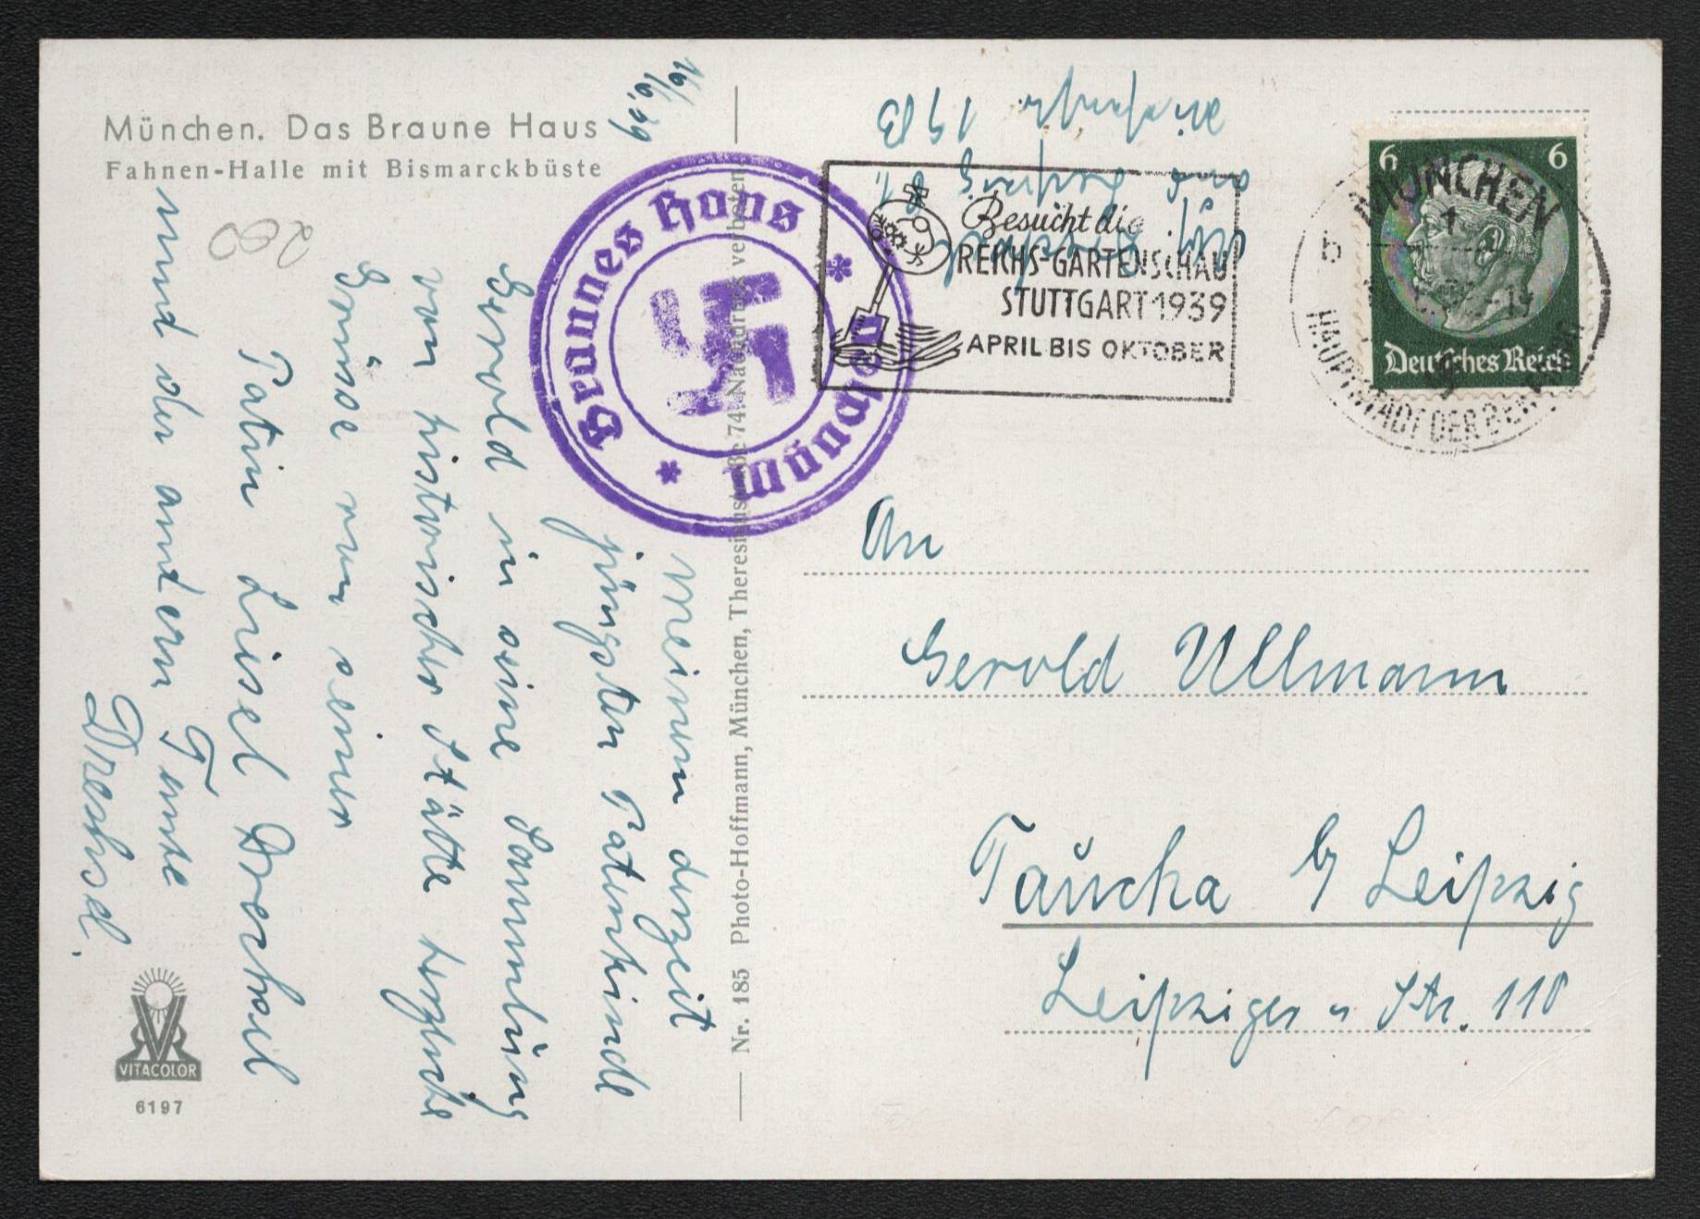 München. Das Braune Haus
Fahnen-Halle mit Bismarckbüste
16/6.39
Meinem derzeit
jüngsten Patenkinde
Gerold in seine Sammlung
von historischer Stätte herzliche
Grüsse von seiner
Patin Liesel Drechsel
und der andern Tante
Drechsel.
280
Braunes Haus
München
Nr. 185 Photo-Hoffmann, München, Theresienstraße 74. Nachdruck verboten
VITACOLOR
6197
1983
Besucht die
REICHS-GARTENSCHAU
STUTTGART 1939
APRIL BIS OKTOBER
6 6
Deutsches Reich
MÜNCHEN
1
b
HAUPTSTADT DER BEWEGUNG
An
Gerold Ullmann
Taucha b/ Leipzig
Leipziger Str. 110